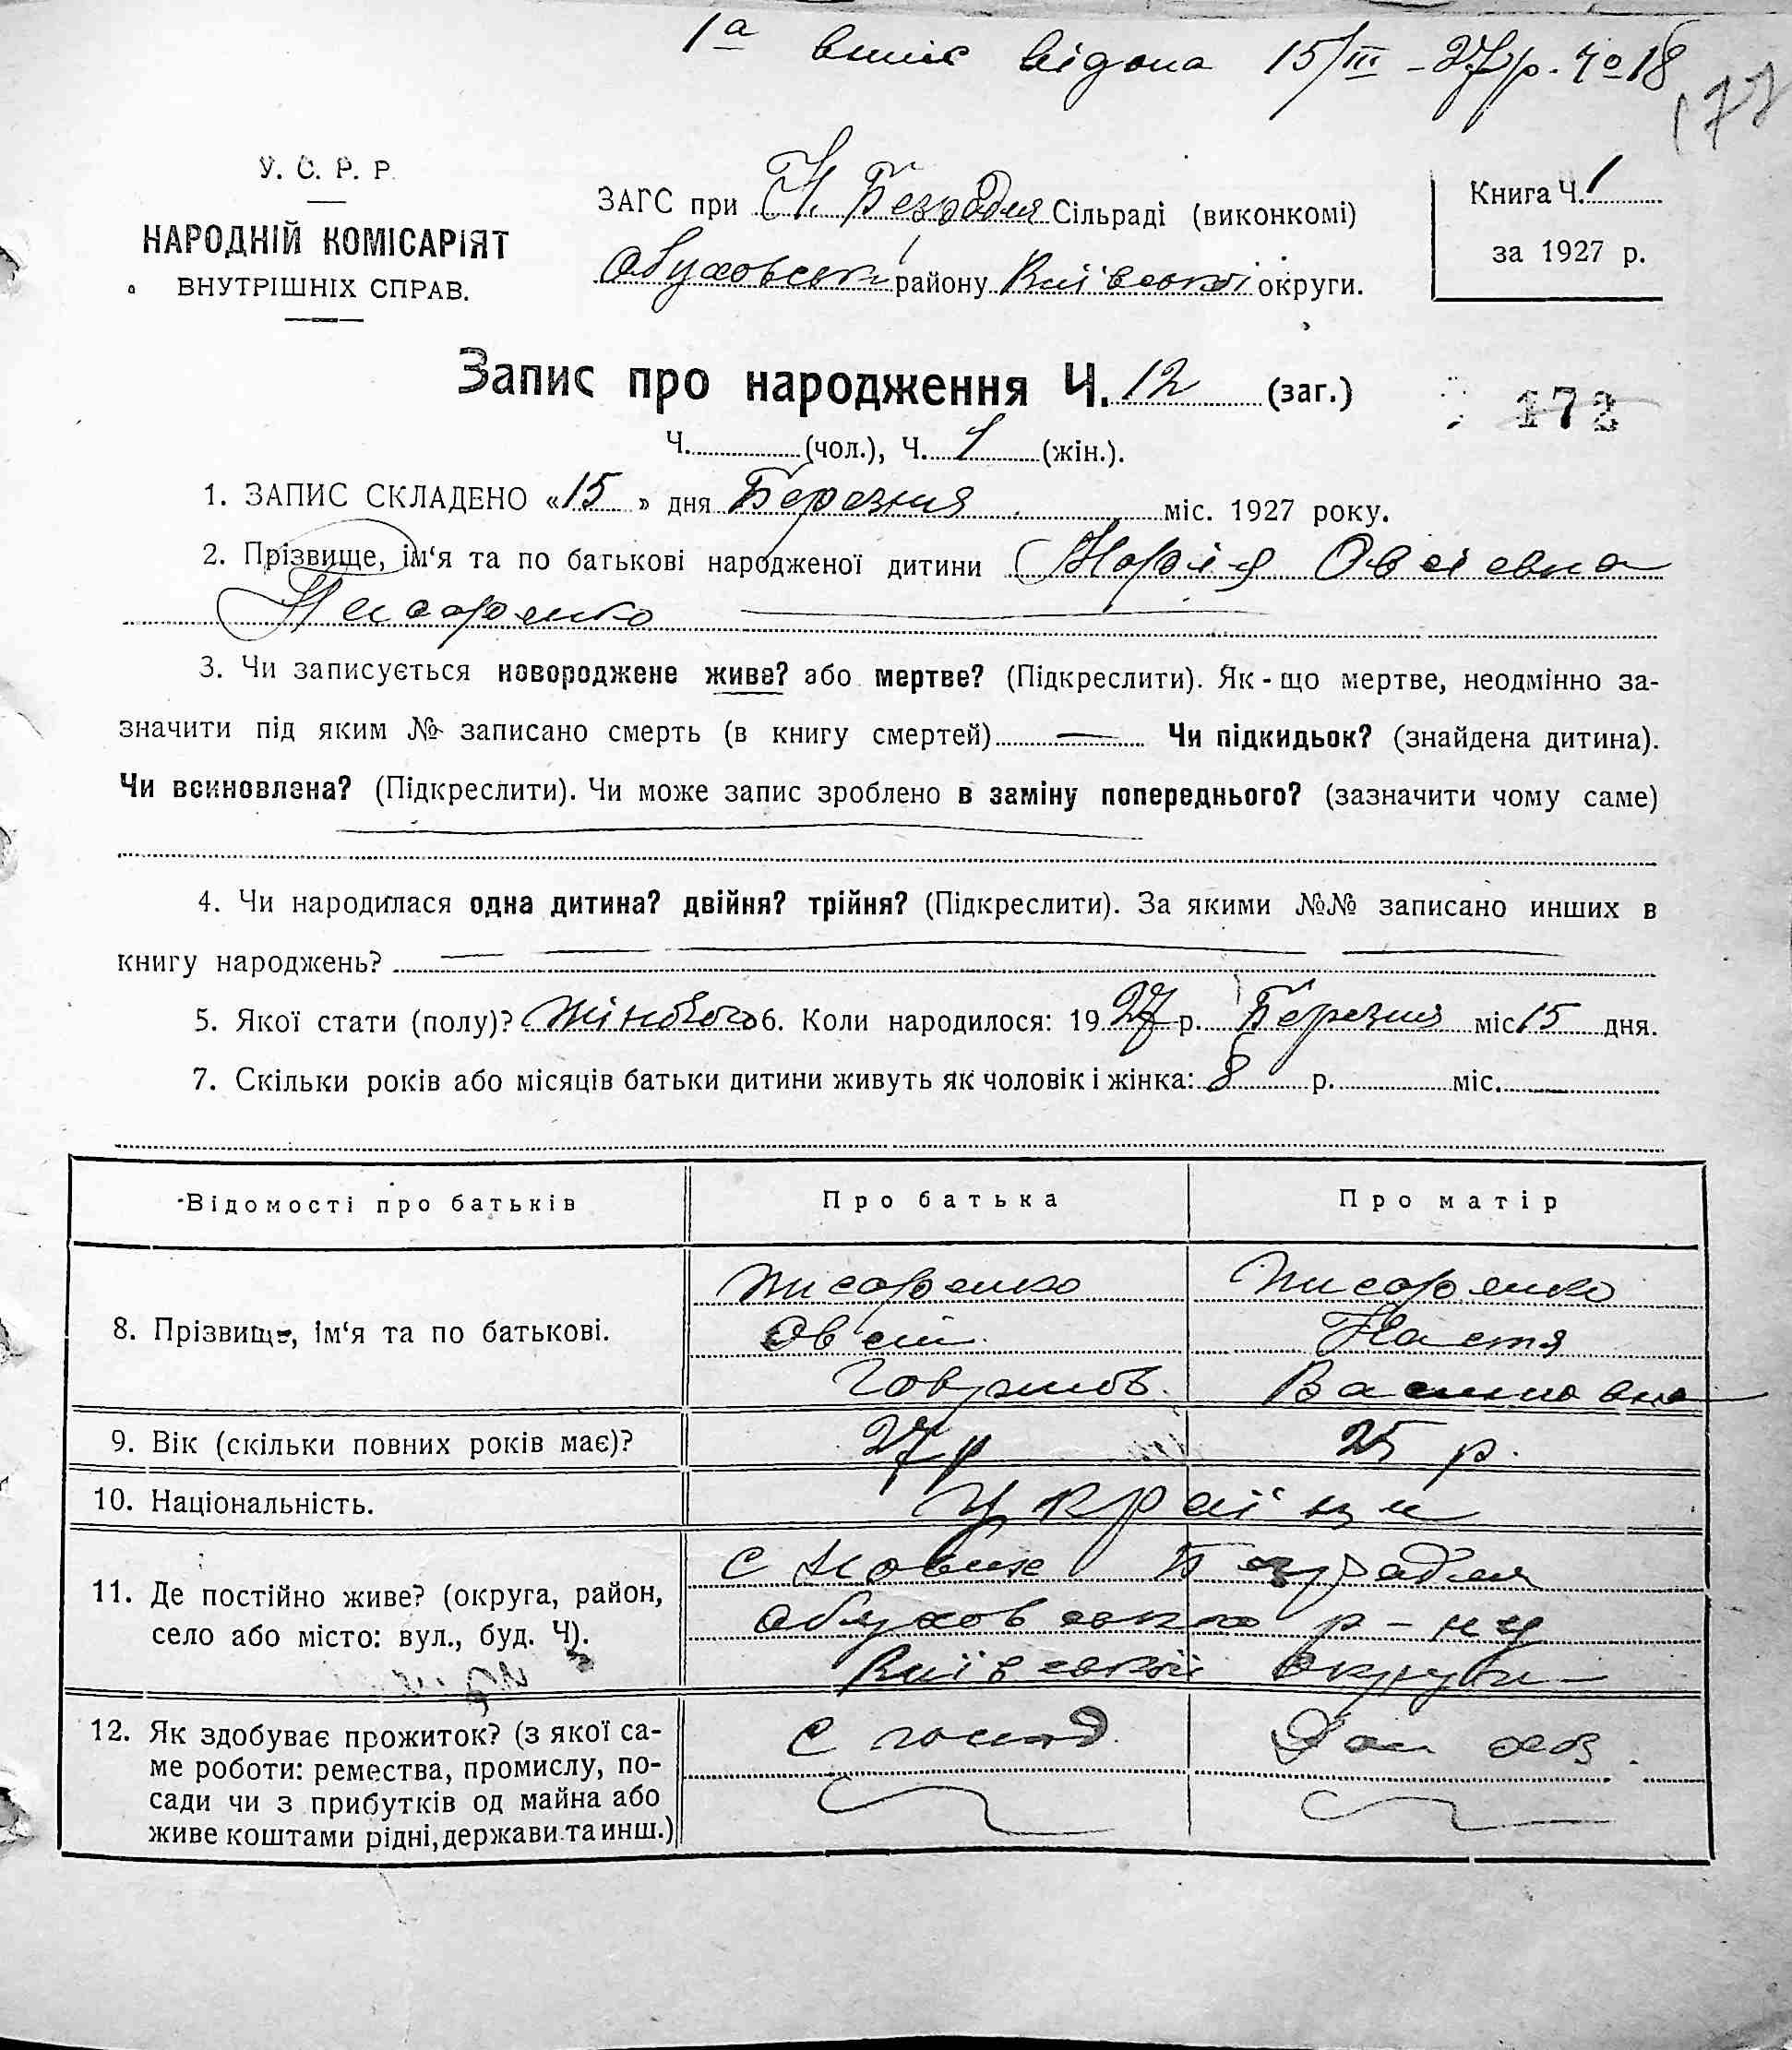 1а випис видана 15/III - 27р. Чо 18
177
У. С. Р. Р.
НАРОДНІЙ КОМІСАРІЯТ
ВНУТРІШНІХ СПРАВ.
ЗАГС при Н. Безрадичі Сільраді (виконкомі)
Обуховськ району Київської округи.
Книга Ч. 1
за 1927 р.
Запис про народження Ч. 12 (заг.)
172
Ч. (чол.), Ч. 1 (жін.).
1. ЗАПИС СКЛАДЕНО «15» дня Березня міс. 1927 року.
2. Прізвище, ім‘я та по батькові народженої дитини Марія Овсіевна
Писаренко
3. Чи записується новороджене живе? або мертве? (Підкреслити). Як-що мертве, неодмінно за-
значити під яким № записано смерть (в книгу смертей) — Чи підкидьок? (знайдена дитина).
Чи всиновлена? (Підкреслити). Чи може запис зроблено в заміну попереднього? (зазначити чому саме)
4. Чи народилася одна дитина? двійня? трійня? (Підкреслити). За якими №№ записано инших в
книгу народжень?
5. Якої стати (полу)? жіночого 6. Коли народилося: 1927 р. Березня міс 15 дня.
7. Скільки років або місяців батьки дитини живуть як чоловік і жінка: 8 р. міс.
Відомості про батьків
Про батька
Про матір
8. Прізвище, ім‘я та по батькові.
Писаренко
Овсій
Гаврилов.
Писаренко
Настя
Василовна
9. Вік (скільки повних років має)?
27 р
25 р.
10. Національність.
Українци
11. Де постійно живе? (округа, район,
село або місто: вул., буд. Ч).
с Нових Безрадич
Обуховського р-ну
Київської округи
12. Як здобуває прожиток? (з якої са-
ме роботи: ремества, промислу, по-
сади чи з прибутків од майна або
живе коштами рідні, держави та инш.)
С господ.
Дом хоз.